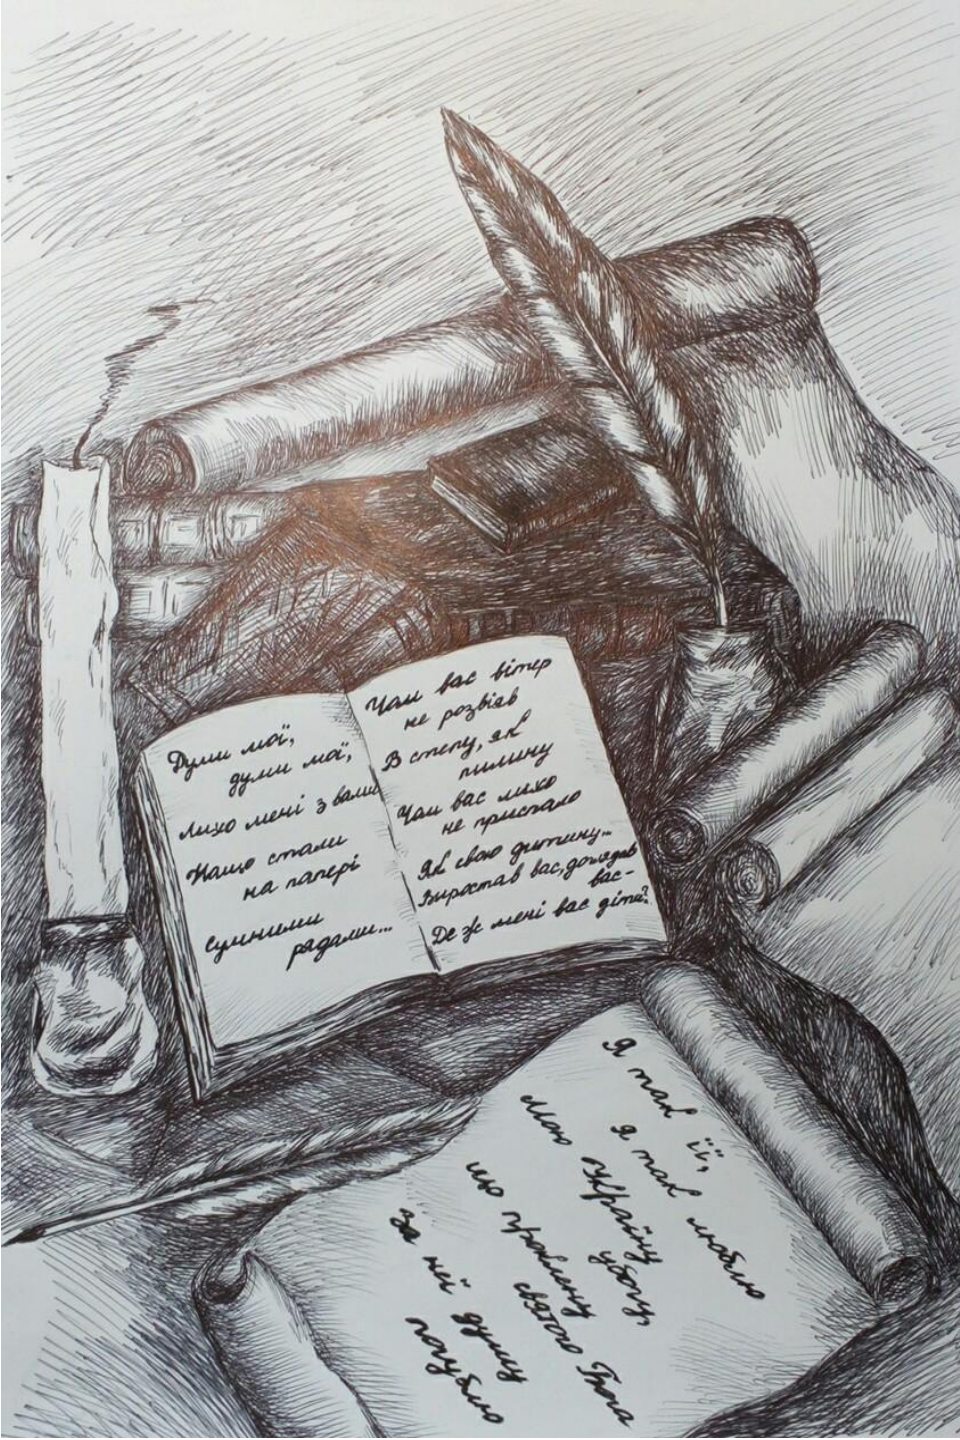 Думи мої,
думи мої,
Лихо мені з вами
Нащо стали
на папері
Сумними
рядами...
Чам вас вітер
не розвіяв
В степу, як
пилину
Чам вас лихо
не приспало
Як свою дитину...
Виростав вас, доглядав
вас-
Де ж мені вас діти?
Я так її,
я так люблю
Мою Україну
убогу,
що проклену
святого Бога
За неї душу
погублю